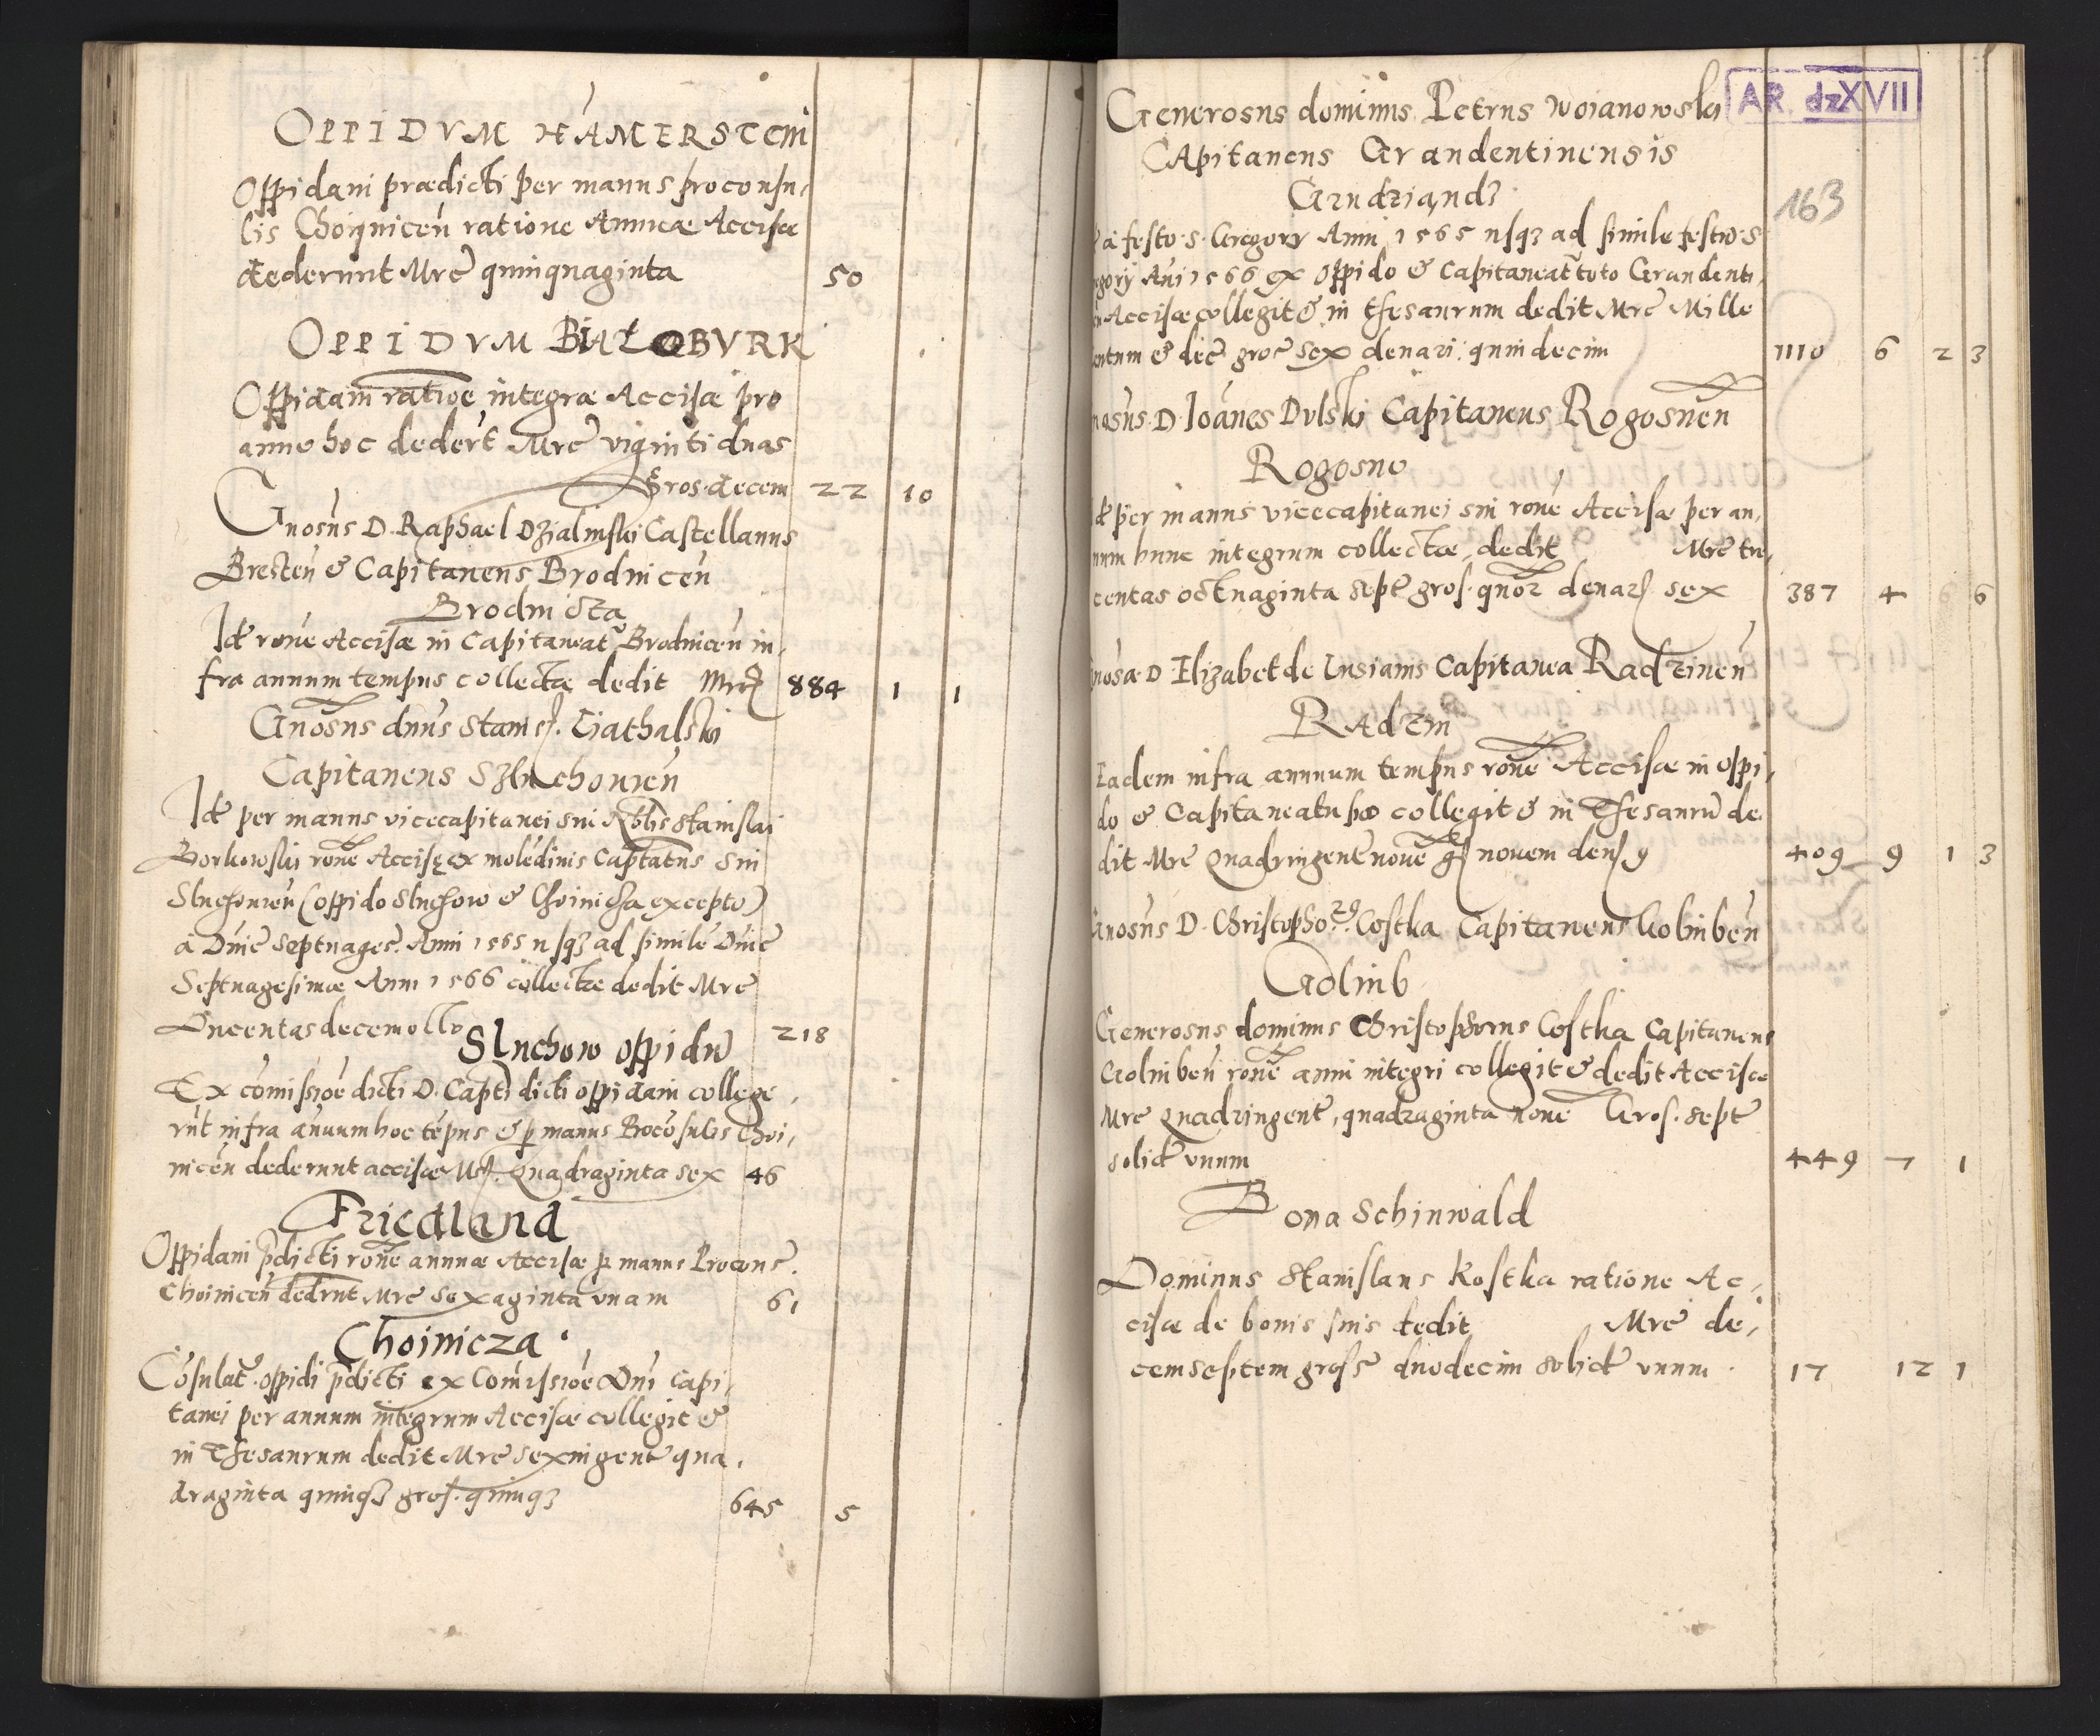 OPPIDVM HAMERSTEIN
Oppidani prædicti per manus proconsu,
lis Choijniceń ratione Annuæ Accisæ
dederunt Mrc̃ quinquaginta 50
OPPIDVM BIAŁOBVRK
Oppidani ratiõe integræ Accisæ pro
anno hoc dedert̃ Mrc̃ viginti duas
Gros. decem 22 10
Gnosus D. Raphael Dzialinski Castellanus
Bresteń & Capitaneus Brodniceń
Brodnicza
Id̃ rone Accisæ in Capitaneat̃ Brodniceń in,
fra annum tempus collectæ dedit Mrc̃ 884 1 1
Gnosus dnus Stanis. Latalski
Capitaneus Szluchouień
Id̃ per manus vicecapitanei sui Nobis Stanislai
Borkowski rone Accisę ex moledinis Captatus sui
Sluchouień (oppido Sluchow & Choinicza excepto)
à Dnic̃ Septuages. Anni 1565 usqȝ ad simile Dnic̃
Septuagesimæ Anni 1566 collectæ dedit Mrc̃
Ducentas decem octo 218
Sluchow oppidũ
Ex comissioe dicti D. Capti dicti oppidani college,
rũt infra annuum hoc tẽpus & p manus Procõsulis Choi,
niceń dederunt accisæ Mr. Quadraginta sex 46
Fridland
Oppidani p̃dicti rone annuæ Accisæ p manus Procons.
Choiniceń dedrnt Mrc̃ sexaginta vnam 61
Choinicza.
Cõsulat̃ oppidi p̃dicti ex Comissioe Dni Capi,
tanei per annum integrum Accisæ collegit &
in Thesaurum dedit Mrc̃ sexingent̃ qua,
draginta quinqȝ gros. quinqȝ 645 5
Generosus dominus Petrus Woianowski
AR dz XVII
CApitaneus Grandentinensis
Grudziandz
163
à festo S. Gregorÿ Anni 1565 usqȝ ad simile festũ S
egorÿ Ani 1566 ex oppido & Capitaneat̃ toto Grandenti,
Accisæ collegit & in thesaurum dedit Mrc̃ Mille
entum & dec̃ groc̃ sex denari. quindecim 1110 6 2 3
nosus D. Ioanes Dulski Capitaneus Rogosneń
Rogosno
Id̃ per manus vicecapitanei sui rone Accisæ per an,
num hunc integrum collectæ dedit Mrc̃ tre,
centas octuaginta sept̃ gros. qnor denar sex 387 4 6
nosa D Elizabet de Lusianis Capitanea Radzineń
RAdzin
Eadem infra annuum tempus rone Accisæ in oppi,
do & Capitaneatu hoc collegit & in Thesaurũ de
dit Mrc̃ Quadringent̃ noue gr novem den 9 409 9 1 3
Gnosus D. Christophor9. Costka Capitaneus Golinbeń
Golinb
Generosus dominus Christophorus Costka Capitaneus
Golinbeń rone anni integri collegit & dedit Accisæ
Mrc̃ Quadringent̃, quadraginta noue Gros. sept̃
solid̃ vnum 449 7 1
Bona Schinwald
Dominus Stanislaus Kostka ratione Ac,
cisæ de bonis suis dedit Mrc̃ de,
cem septem gross̃ duodecim solid̃ vnum. 17 12 1